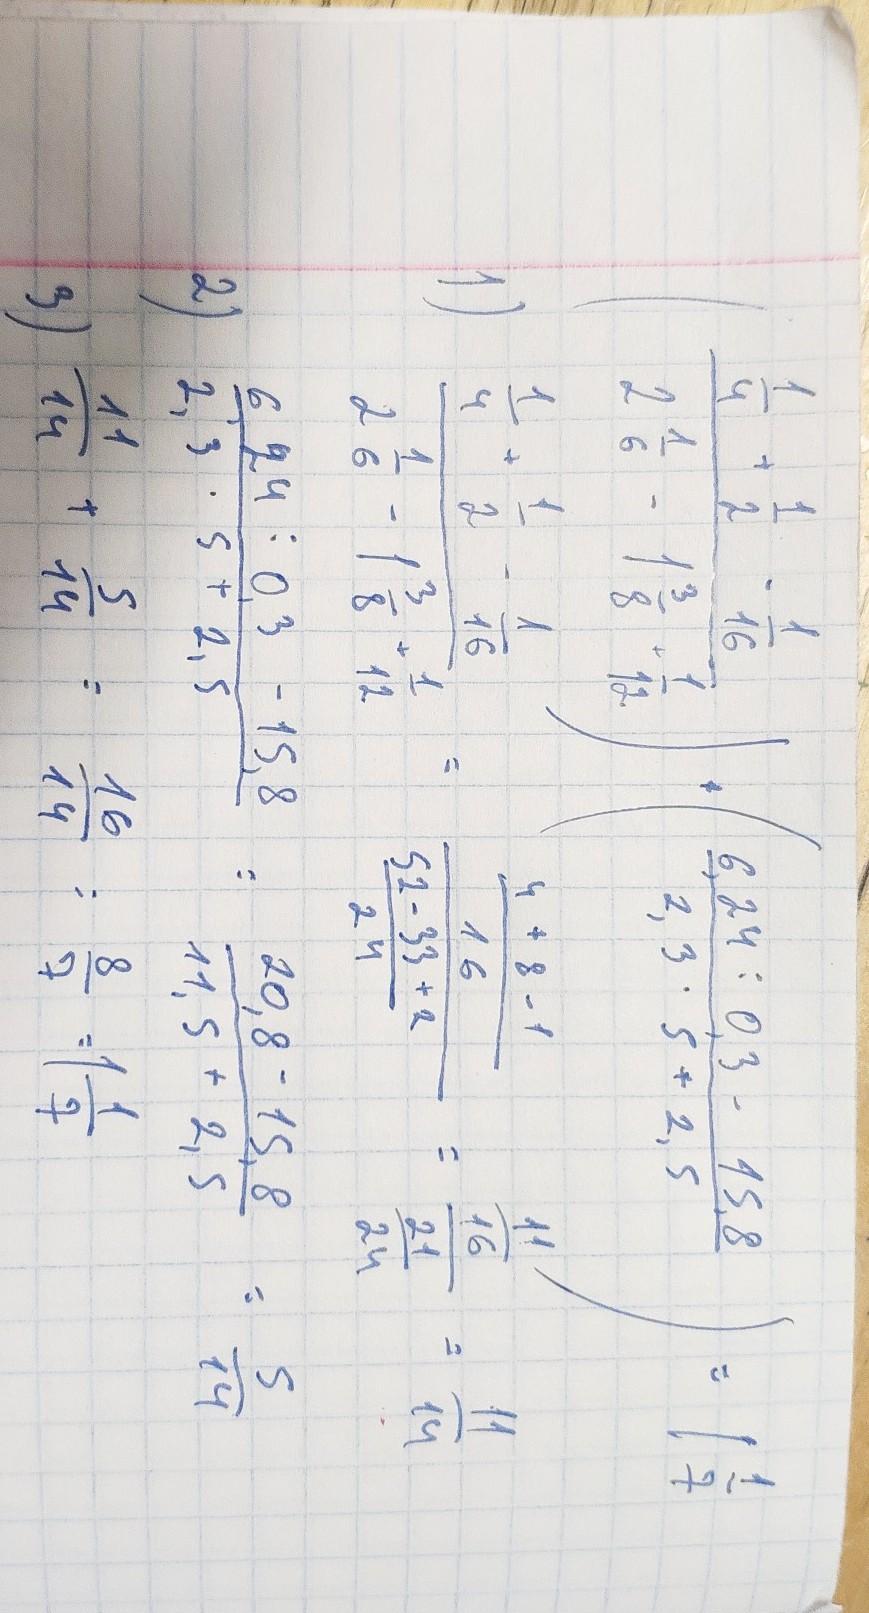 ( (1/4 + 1/2 - 1/16) / (2 1/6 - 1 3/8 + 1/12) ) + ( (6,24 : 0,3 - 15,8) / (2,3 · 5 + 2,5) ) = 1 1/7
1) (1/4 + 1/2 - 1/16) / (2 1/6 - 1 3/8 + 1/12) = ((4 + 8 - 1)/16) / ((52 - 33 + 2)/24) = (11/16) / (21/24) = 11/14
2) (6,24 : 0,3 - 15,8) / (2,3 · 5 + 2,5) = (20,8 - 15,8) / (11,5 + 2,5) = 5/14
3) 11/14 + 5/14 = 16/14 = 8/7 = 1 1/7